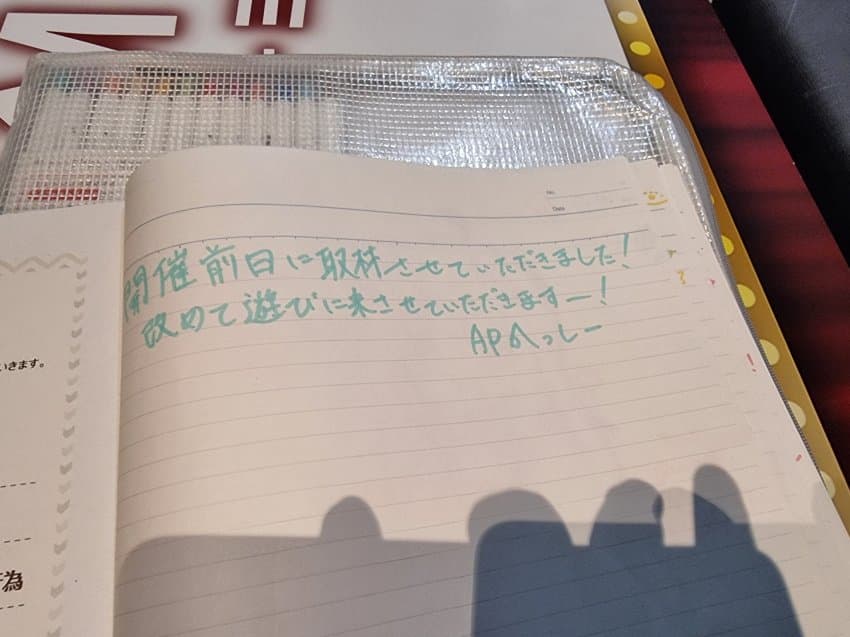 No.
Date
開催前日に取材させていただきました！
改めて遊びに来させていただきますー！
APへっしー
いきます。
為